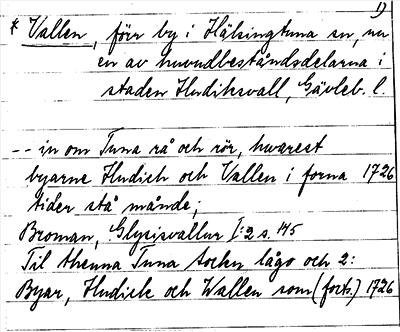 1)
* Vallen, förr by i Hälsingtuna sn, nu
en av huvudbeståndsdelarna i
staden Hudiksvall, Gävleb. l.
-- in om Tuna rå och rör, hwarest
byarne Hudich och Vallen i forna 1726
tider stå månde;
Broman, Glysisvallur I:2 s. 145
Til thenna Tuna socken lågo och 2:
Byar, Hudick och Wallen som (forts.) 1726